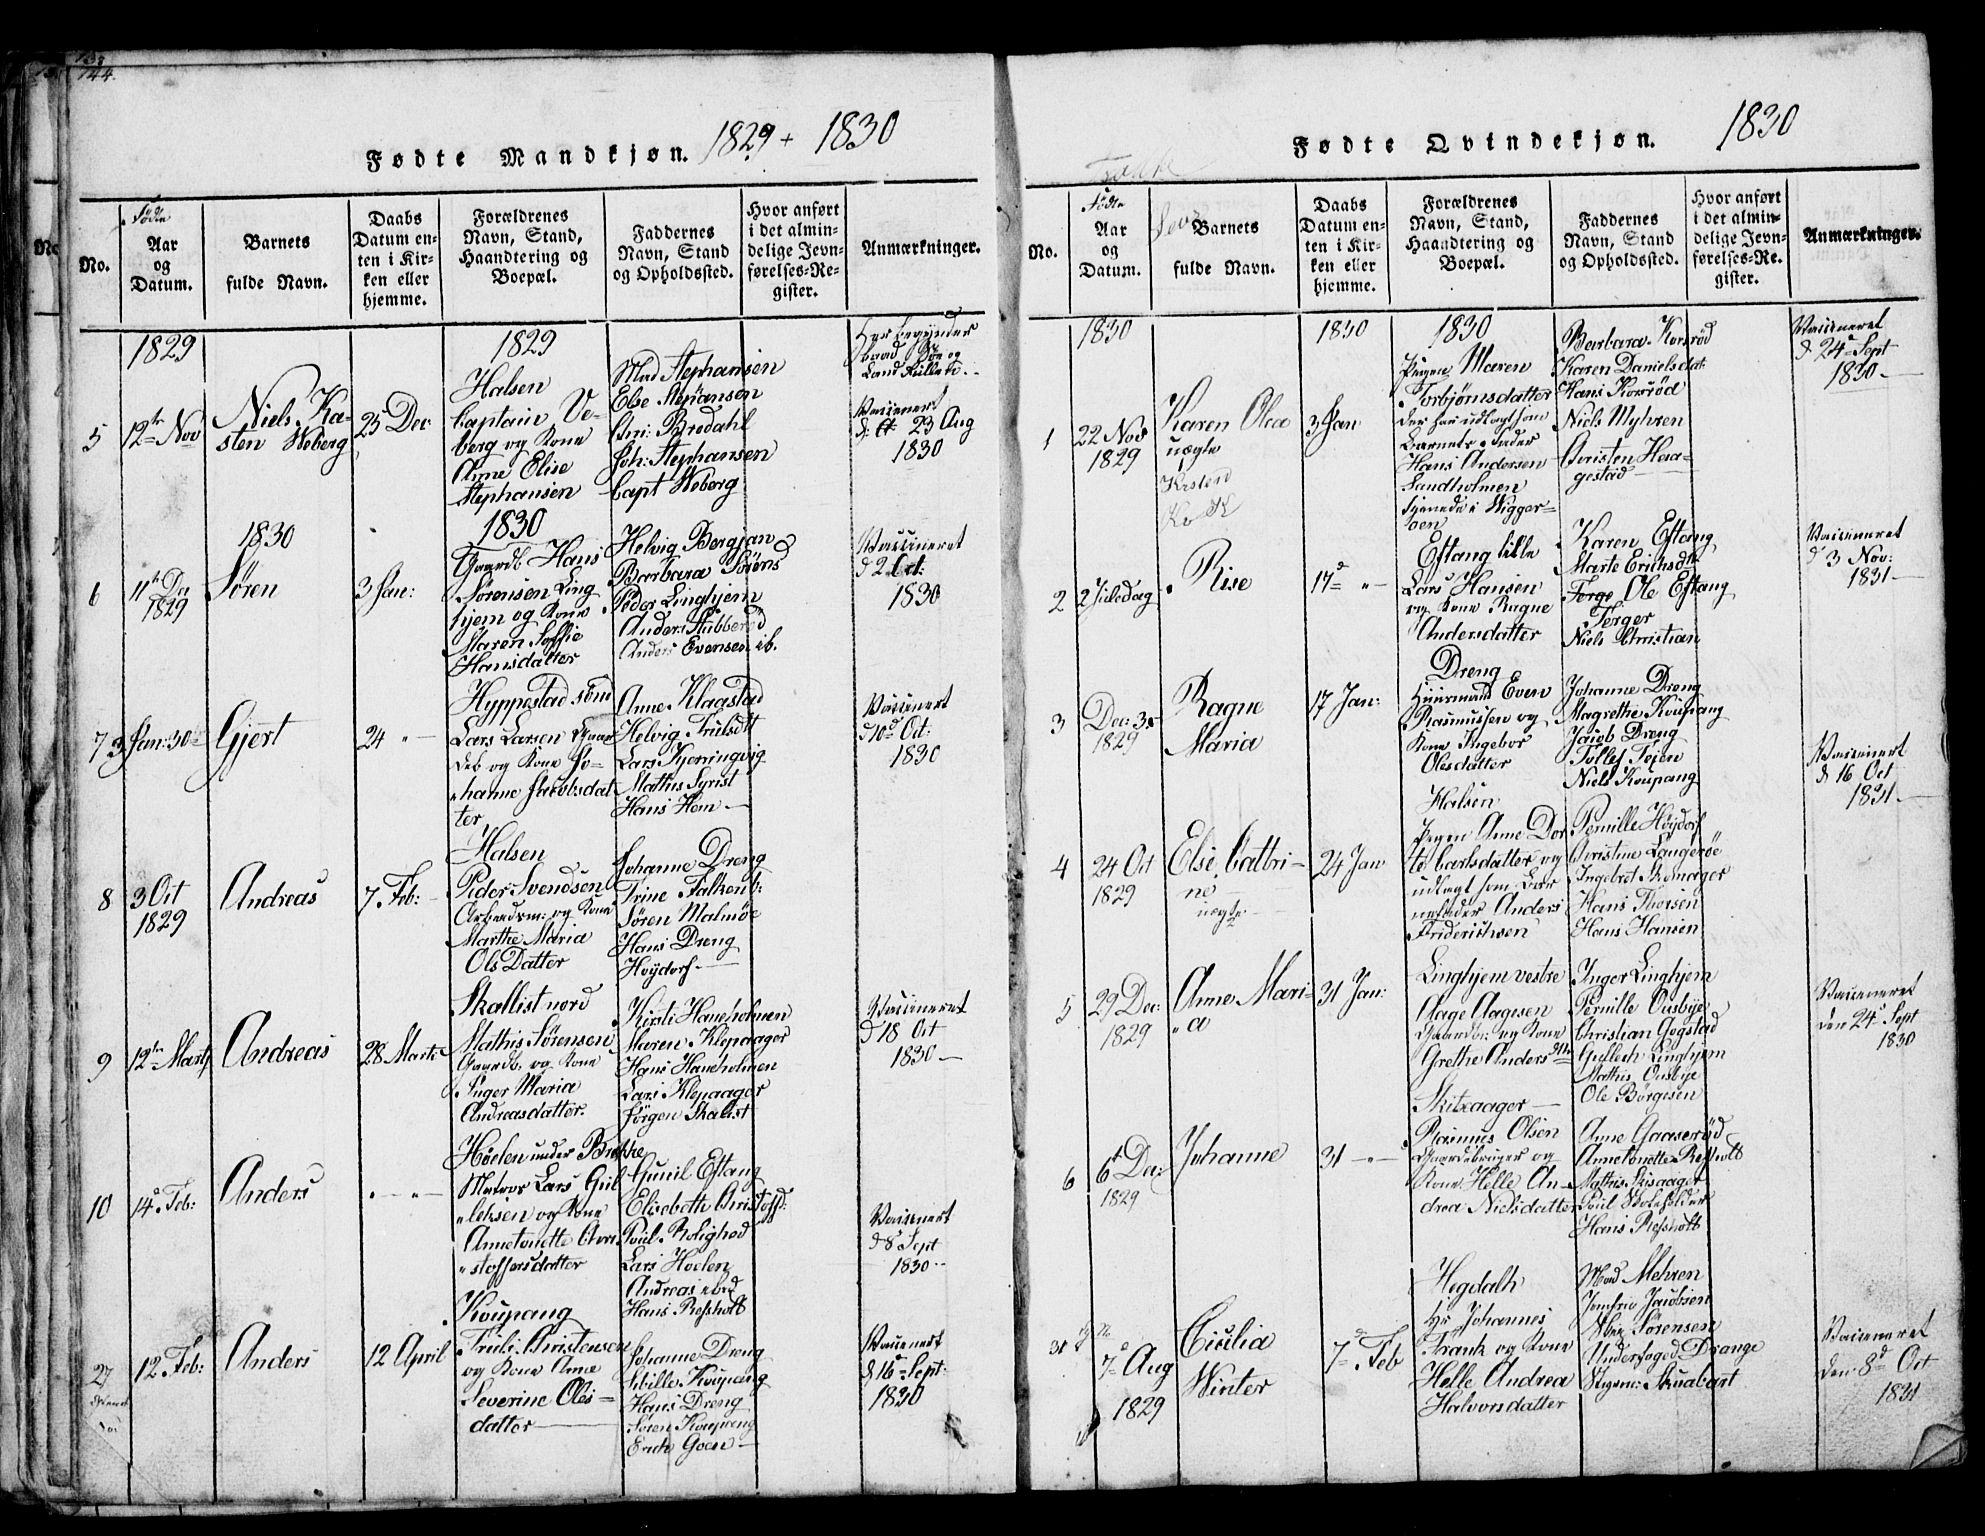 144.
Fødte Mandkjøn. 1829 + 1830
No.
Fødte
Aar
og
Datum.
Barnets
fulde Navn.
Daabs
Datum en-
ten i Kir-
ken eller
hjemme.
Forældrenes
Navn, Stand,
Haandtering og
Boepæl.
Faddernes
Navn, Stand
og Opholdssted.
Hvor anført
i det almin-
delige Jevn-
førelses-Re-
gister.
Anmærkninger.
1829
5
12te Nov
Niels Ka-
sten Woberg
25 Dec:
1829
Halsen
Captain We-
berg og Kone
Anne Elise
Stephansen
Mad Stephansen
Else Stephansen
Chri: Bredahl
Joh: Stephansen
Capt Woberg
Her begynder
Vaccineret
d. 23 Aug
1830
1830
6
11te Dec
1829
Søren
3 Jan:
1830
Gaardb Hans
Sørensen Ling
hjem og Kone
Maren Soffie
Hansdatter
Helvig Bergjan
Barbara Sørens
Peder Linghjem
Anders Stubberød
Anders Evensen ib.
Vaccineret
d 2 Oct:
1830
7
3 Jan: 30
Gjert
24 "
Hyppestad sönd
Lars Larsen Gaar
deb og Kone Jo-
hanne Jacobsdat
ter
Anne Klagstad
Helvig Trulsdt
Lars Kjerringvig
Mathis Syrist
Hans Hem
Vaccineret
d 10d Oct:
1830
8
3 Oct
1829
Andreas
7 Feb:
Halsen
Peder Svendsen
Arbeidsm: og Kone
Marthe Maria
Ols Datter
Johanne Dreng
Trine Falkenb:
Søren Malmöe
Hans Dreng
Höydorf
9
12te Marts
Andreas
28 Marts
Skallist nord
Mathis Sørensen
Gaardb. og Kone
Inger Maria
Andreasdatter.
Kirsti Haneholmen
Maren Klepaager
Hans Haneholmen
Lars Klepaager
Jörgen Skalist
Vaccineret
d 18 Oct
1830
10
14d Feb:
Anders
" "
Hoelen under Brekke
Matros Lars Gul
leksen og Kone
Annetonette Chri
stoffersdatter
Gunil Eftang
Elisabeth Christoffd:
Poul Rolighed
Lars Hoelen
Andreas ibid
Hans Resholt
Vaccineret
d 8d Sept
1830
27
12 Feb:
Anders
12 April
Koupang
Truls Christensen
og Kone Anne
Severine Oles-
datter
Johanne Dreng
Sibille Koupang
Hans Dreng
Søren Koupang
Erich Goen
Vaccineret
d 16d Sept:
1830
Fødte Qvindekjøn. 1830
No.
Fødte
Aar
og
Datum.
Barnets
fulde Navn.
Daabs
Datum en-
ten i Kir-
ken eller
hjemme.
Forældrenes
Navn, Stand,
Haandtering og
Boepæl.
Faddernes
Navn, Stand
og Opholdssted.
Hvor anført
i det almin-
delige Jevn-
førelses-Re-
gister.
Anmærkninger.
1830
1
22 Nov
1829
Karen Olea
uægte
1830
3 Jan
1830
Pigen Maren
Torbjörnsdatter
der har udlagt som
Barnets Fader
Hans Andersen
Sandholmen
tjenende i Wigger-
öen
Barbara Korsröd
Karen Danielsdat
Hans Korsröd
Niels Myhren
Christen Haa-
gestad
Vaccineret
d 24d Sept
1830
2
2 Juledag
Rise
17d "
Eftang lille
Lars Hansen
og Kone Ragne
Andersdatter
Karen Eftang
Marte Erichsdtr
Ole Eftang
Terger
Niels Christian
Vaccineret
d 3 Nov:
1831
3
Dec: 31
1829
Ragne
Maria
17 Jan:
Dreng
Huusmand Even
Rasmussen og
Kone Ingebor
Olesdatter
Johanne Dreng
Magrethe Koupang
Jacob Dreng
Tollef Tojen
Niels Koupang
Vaccineret
d 16 Oct
1831
4
24 Oct
1829
Else Cathri-
ne
uægte
24 Jan
Halsen
Pigen Anne Dor
te Carlsdatter og
udlagt som Bar
nefader Anders
Friderichsen
Pernille Höydorf
Christine Langeröe
Ingebret Skomager
Hans Thorsen
Hans Hansen
5
29 Dec:
1829
Anne Mari-
"a
31 Jan:
Linghjem vestre
Aage Aagesen
Gaardbr: og Kone
Grethe Anders Dtr
Inger Linghjem
Pernille Ousbye
Christian Gogstad
Gullech Linghjem
Mathis Ousbye
Ole Börgesen
Vaccineret
den 24d Sept
1830
6
6t Dec:
1829
Johanne
31 "
Skitsaager
Rasmus Olsen
Gaardebruger og
Kone Helle An-
drea Nielsdatter
Anne Gaaseröd
Annetonette Resholt
Mathis Skisaager
Poul
Hans Resholt
31
7d Aug
1829
Cicilia
Winter
7d Feb
Hegdalh
Hr Johannes
Frank og Kone
Helle Andrea
Halvorsdatter
Mad Mehren
Jomfru Jacobsen
Sørensen
Underfoged Drange
Skuabart
Vaccineret
den 8d Oct
1831